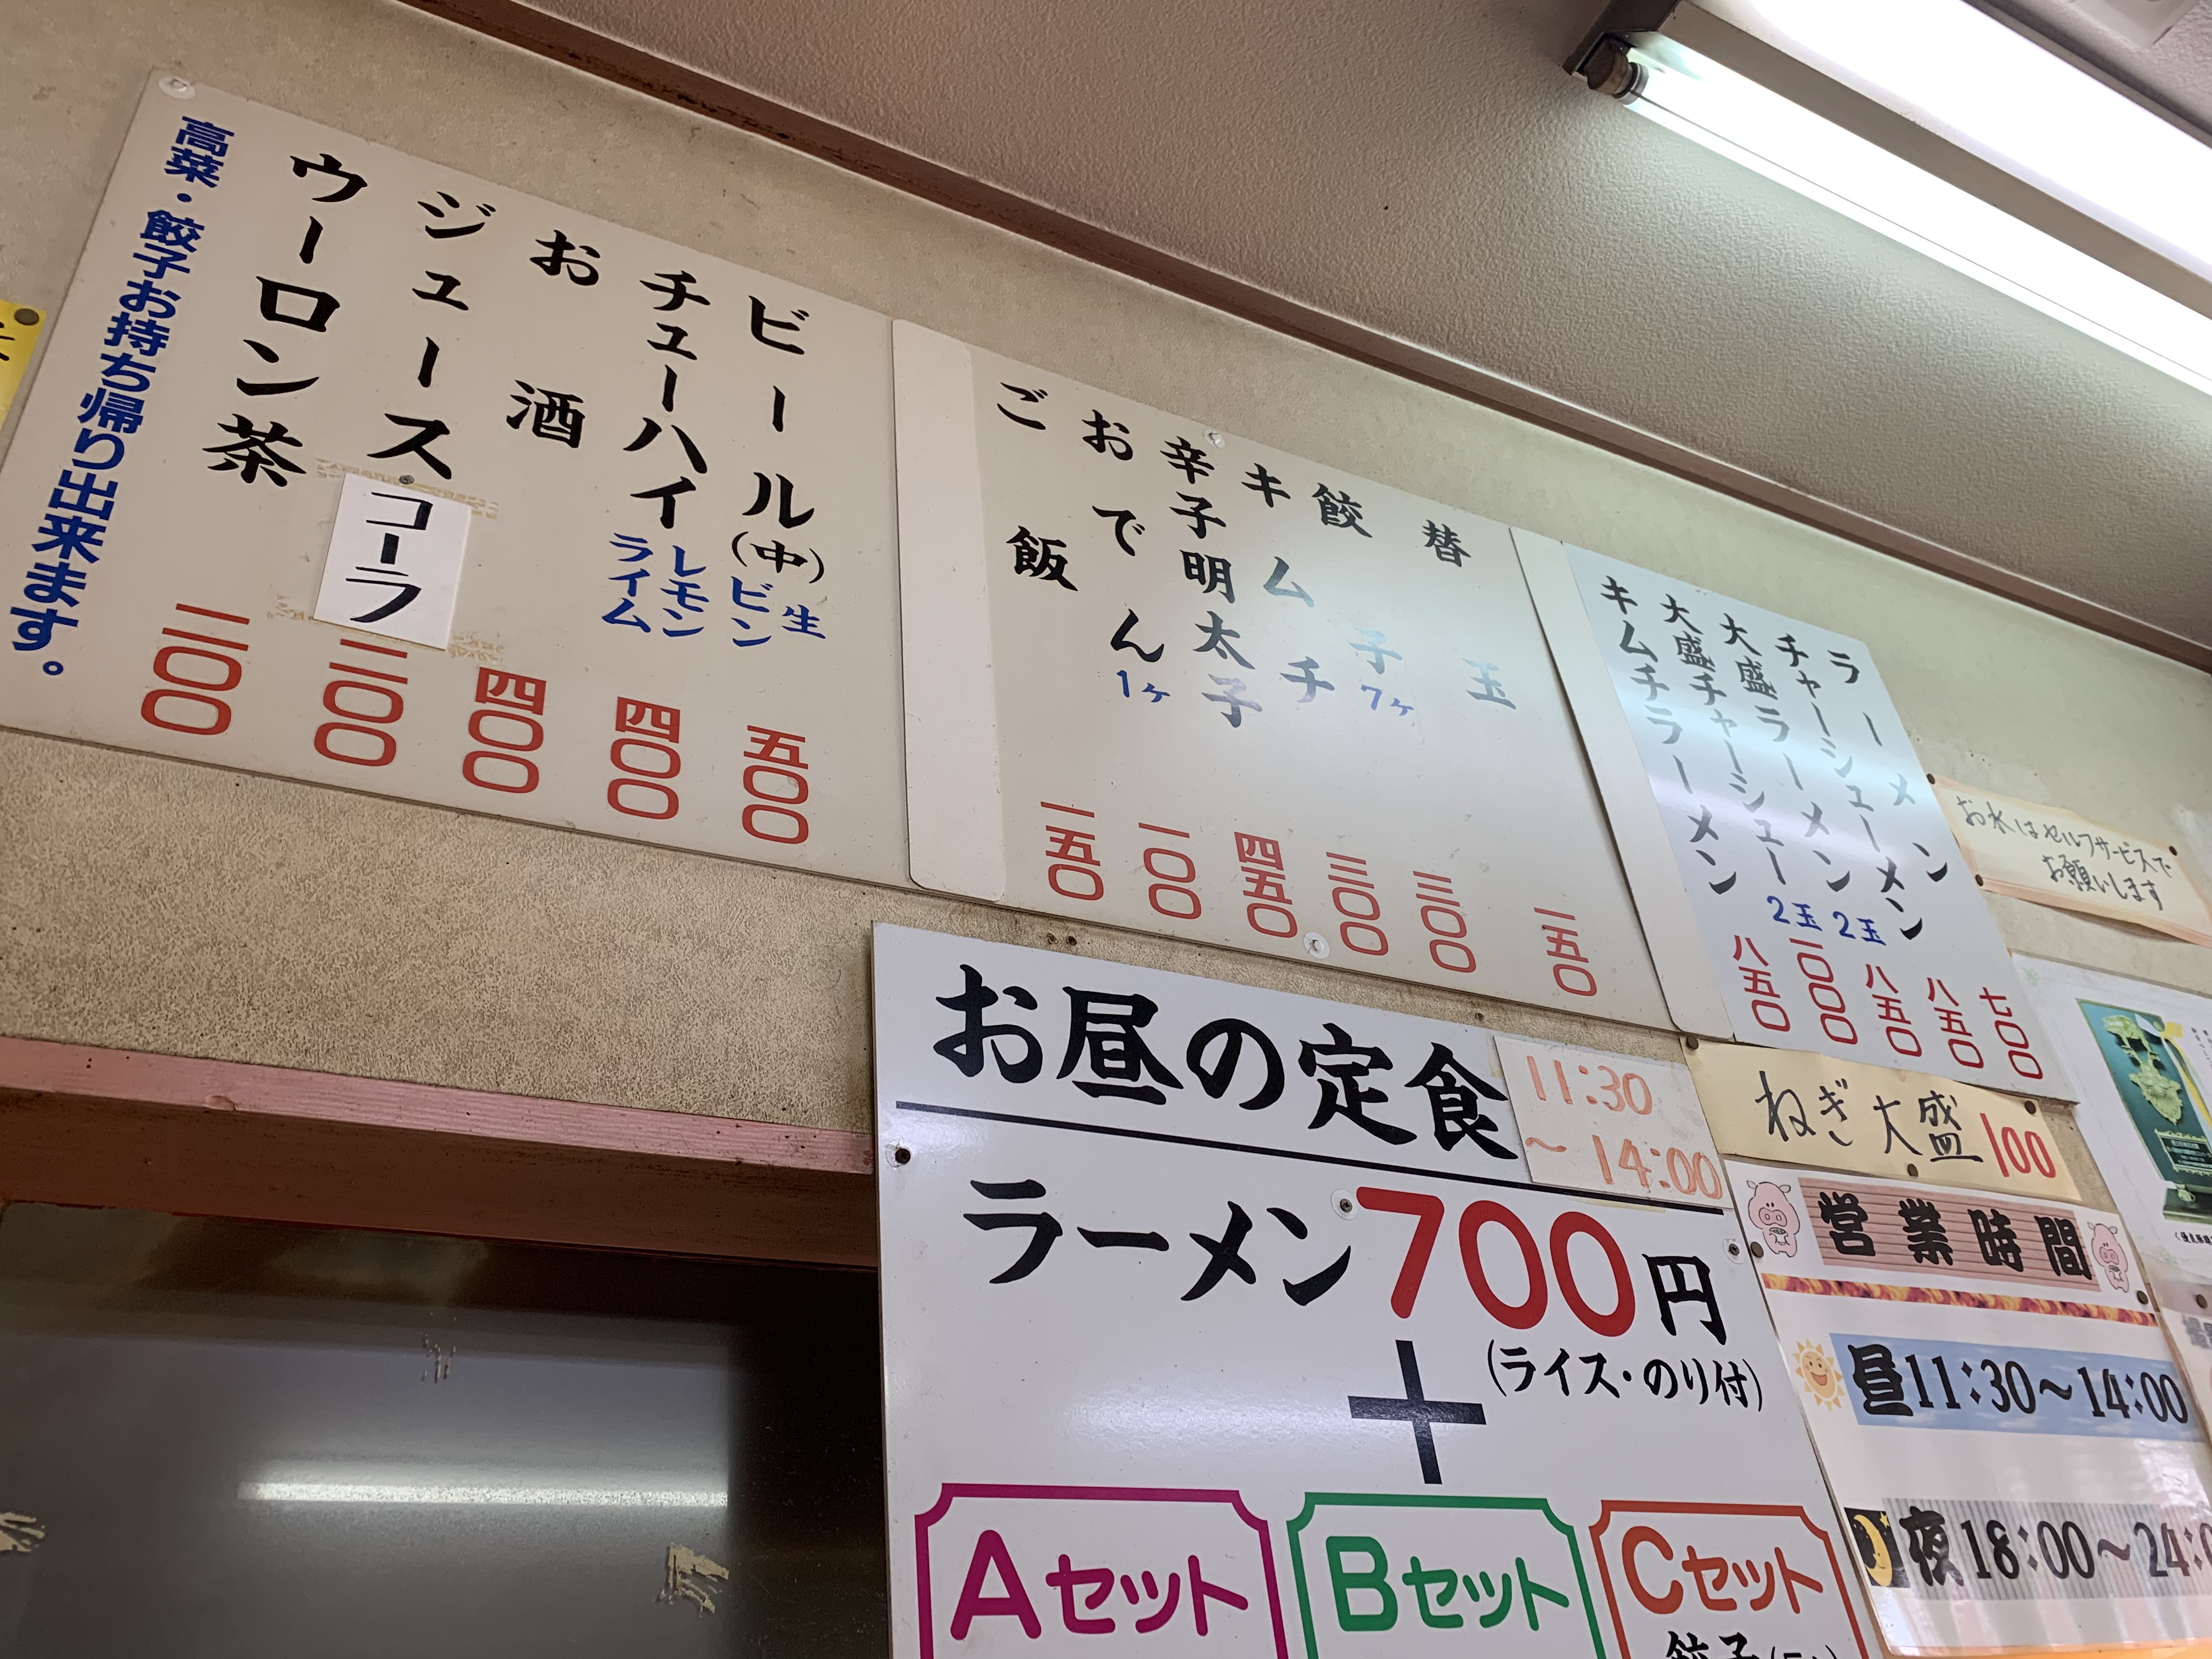 ラーメン 七〇〇
チャーシューメン 八五〇
大盛ラーメン 2玉 八五〇
大盛チャーシュー 2玉 一〇〇〇
キムチラーメン 八五〇
替玉 一五〇
餃子 7ヶ 三〇〇
キムチ 三〇〇
辛子明太子 四五〇
おでん 1ヶ 一〇〇
ご飯 一五〇
ビール(中) 生 ビン 五〇〇
チューハイ レモン ライム 四〇〇
お酒 四〇〇
ジュース コーラ 二〇〇
ウーロン茶 二〇〇
高菜・餃子お持ち帰り出来ます。
お水はセルフサービスで
お願いします
お昼の定食
11:30
～14:00
ラーメン700円
(ライス・のり付)
＋
Aセット
Bセット
Cセット
餃子
ねぎ大盛100
営業時間
昼11:30～14:00
夜18:00～24:0